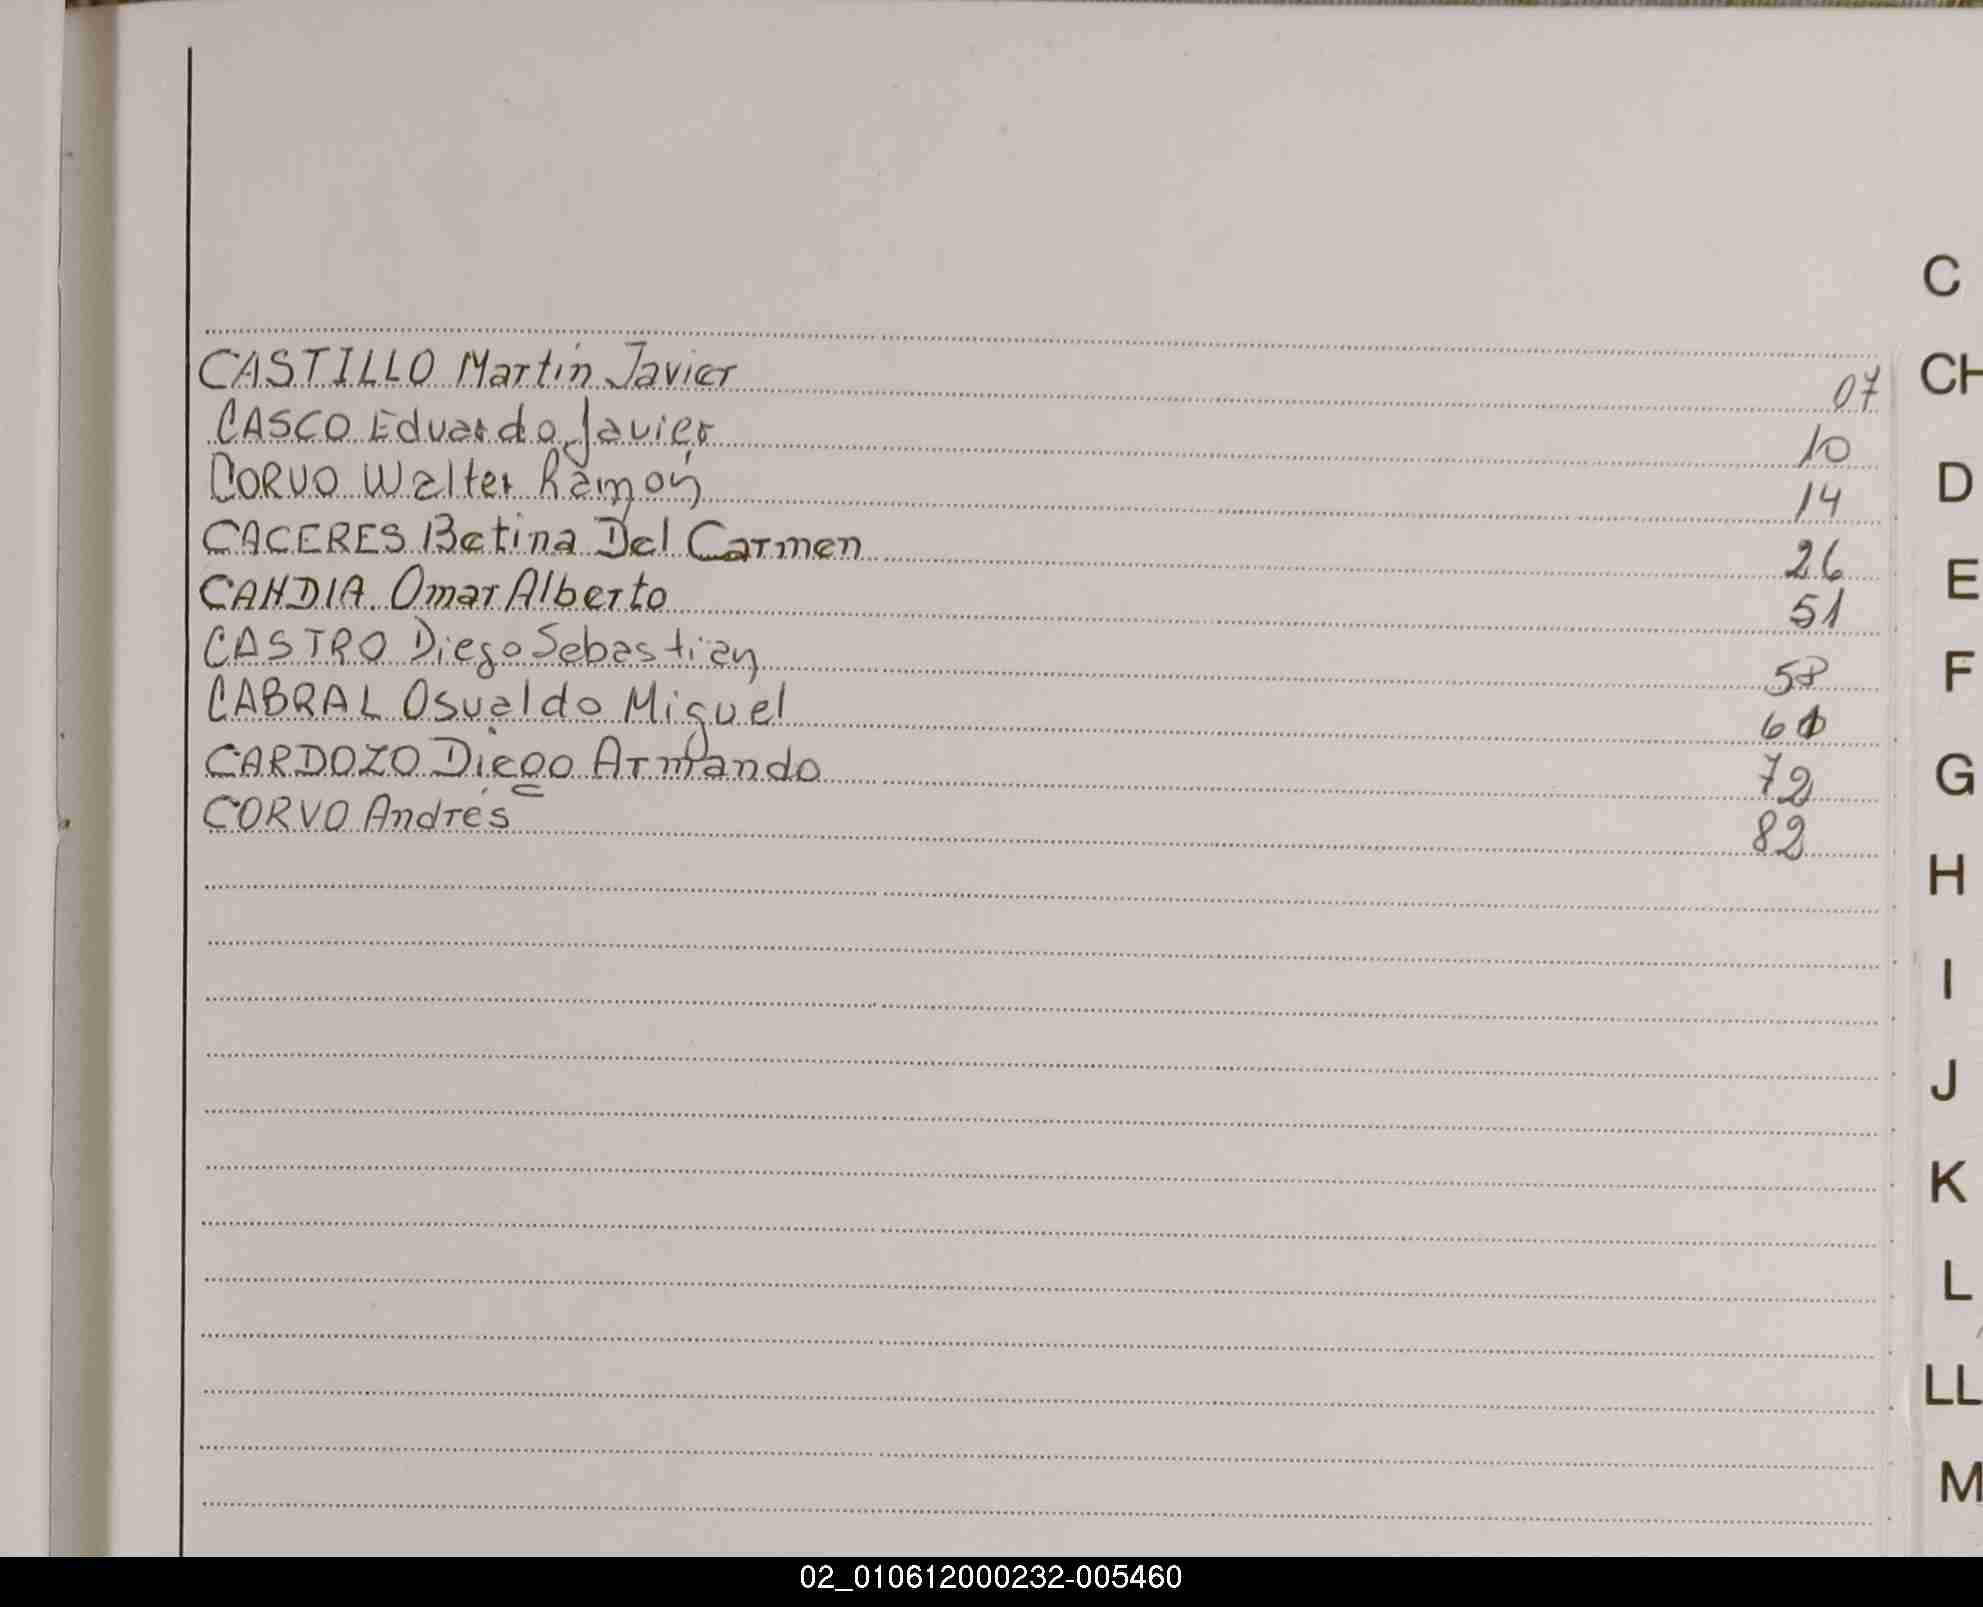 CASTILLO Martín Javier 07
CASCO Eduardo Javier 10
CORVO Walter Ramón 14
CACERES Betina Del Carmen 26
CANDIA Omar Alberto 51
CASTRO Diego Sebastian 58
CABRAL Osvaldo Miguel 61
CARDOZO Diego Armando 72
CORVO Andrés 82
C
CH
D
E
F
G
H
I
J
K
L
LL
M
02_010612000232-005460